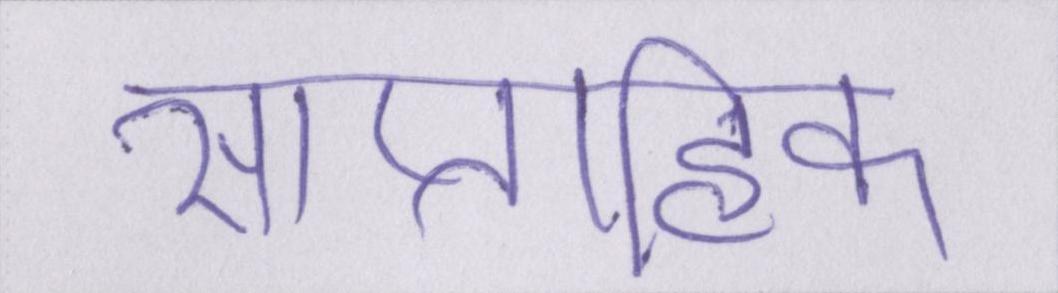 साप्ताहिक